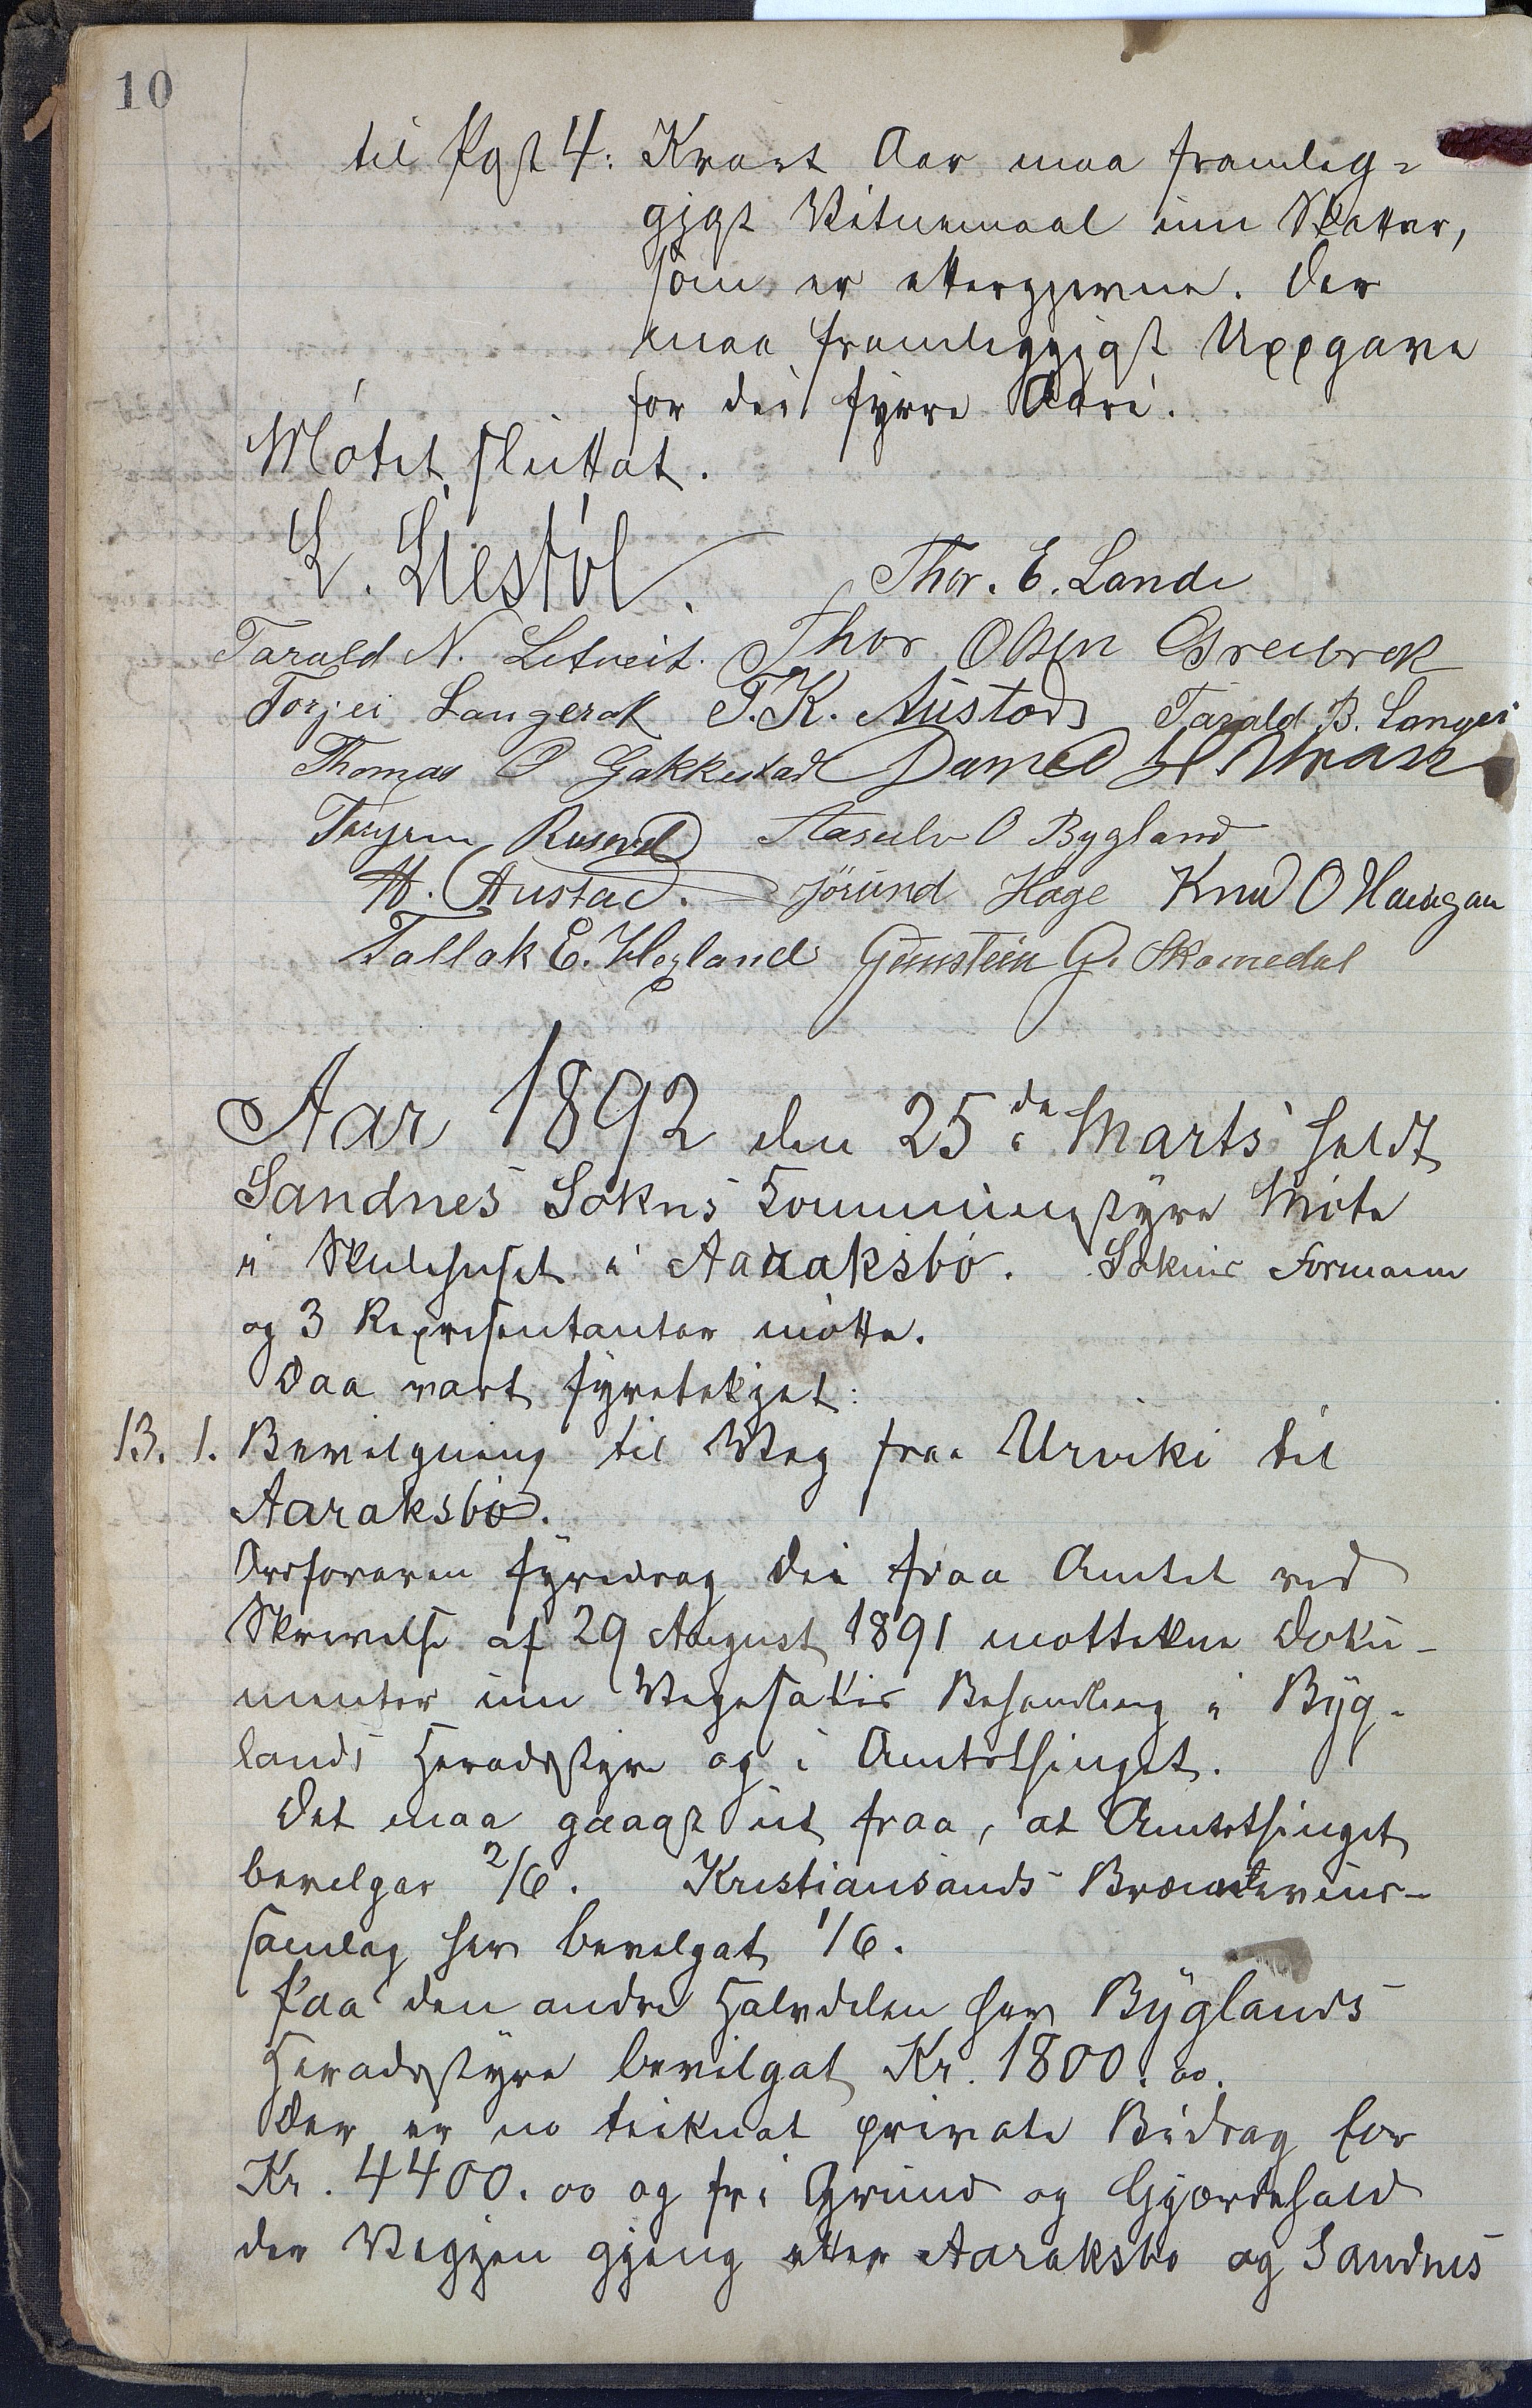 10
til Post 4: Kvart Aar maa framleg-
gjast Vitnemaal um Skattar,
som er ettergjevne. Der
maa framleggjast Uppgave
for dei fyrre Aari.
Møtet sluttat.
L. Liestøl. Thor. E. Lande
Tarald N. Litveit. Thor Olsen Greibrok
Torjei Langerak T. K. Austad Tarald B. Langei
Thomas O Gakkestad Daniel H
Rusnes Aasulv O Bygland
A. Austad. Jørund Hage Knud O Haugan
Tallak E. Heyland Gunstein G. Skomedal
Aar 1892 den 25de Marts heldt
Sandnes Sokns Kommunestyre Møte
i Skulehuset i Aaraksbø. Soknis Formann
og 3 Representantar møtte.
Daa vart fyretekjet:
13. 1. Bevilgning til Veg fraa Urviki til
Aaraksbø.
Ordføraren fyredrog dei fraa Amtet ved
Skrivelse af 29 August 1891 mottekne Doku-
menter um Vegesakis Behandling i Byg-
lands Heradsstyre og i Amtstinget.
Det maa gaaast ut fraa, at Amtstinget
bevilgar 2/6. Kristiansands Brændevins-
samlag hev bevilgat 1/6.
Paa den andre Halvdelen hev Byglands
Heradsstyre bevilgat Kr. 1800.00.
Der er no teiknat private Bidrag for
Kr. 4400.00 og fri Grund og Gjærdehald
der Vegjen gjeng etter Aaraksbø og Sandnes